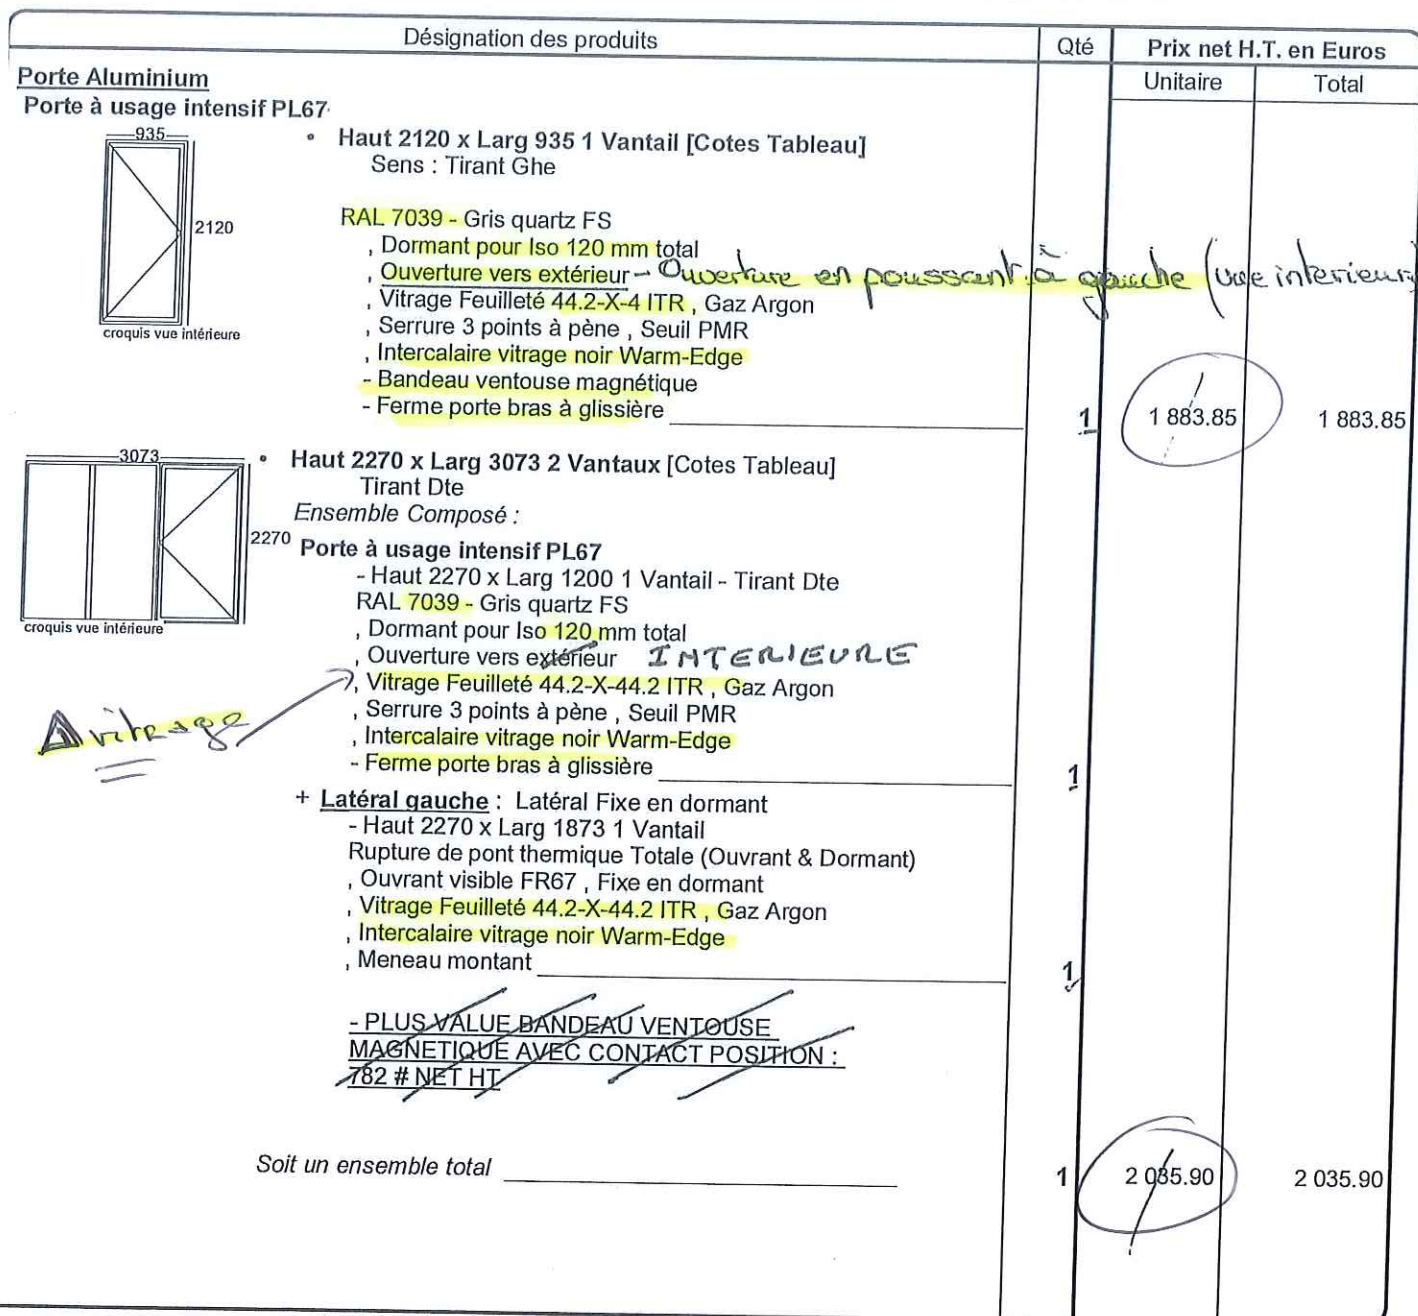 Désignation des produits Qté Prix net H.T. en Euros
Unitaire Total
Porte Aluminium
Porte à usage intensif PL67
935
2120
croquis vue intérieure
• Haut 2120 x Larg 935 1 Vantail [Cotes Tableau]
Sens : Tirant Ghe
RAL 7039 - Gris quartz FS
, Dormant pour Iso 120 mm total
, Ouverture vers extérieur - Ouverture en poussant à gauche (vue interieure
, Vitrage Feuilleté 44.2-X-4 ITR , Gaz Argon
, Serrure 3 points à pène , Seuil PMR
, Intercalaire vitrage noir Warm-Edge
- Bandeau ventouse magnétique
- Ferme porte bras à glissière 1 1 883.85 1 883.85
3073
2270
croquis vue intérieure
• Haut 2270 x Larg 3073 2 Vantaux [Cotes Tableau]
Tirant Dte
Ensemble Composé :
Porte à usage intensif PL67
- Haut 2270 x Larg 1200 1 Vantail - Tirant Dte
RAL 7039 - Gris quartz FS
, Dormant pour Iso 120 mm total
, Ouverture vers extérieur INTERIEURE
, Vitrage Feuilleté 44.2-X-44.2 ITR , Gaz Argon
, Serrure 3 points à pène , Seuil PMR
vitrage
, Intercalaire vitrage noir Warm-Edge
- Ferme porte bras à glissière 1
+ Latéral gauche : Latéral Fixe en dormant
- Haut 2270 x Larg 1873 1 Vantail
Rupture de pont thermique Totale (Ouvrant & Dormant)
, Ouvrant visible FR67 , Fixe en dormant
, Vitrage Feuilleté 44.2-X-44.2 ITR , Gaz Argon
, Intercalaire vitrage noir Warm-Edge
, Meneau montant 1
- PLUS VALUE BANDEAU VENTOUSE
MAGNETIQUE AVEC CONTACT POSITION :
782 # NET HT
Soit un ensemble total 1 2 035.90 2 035.90